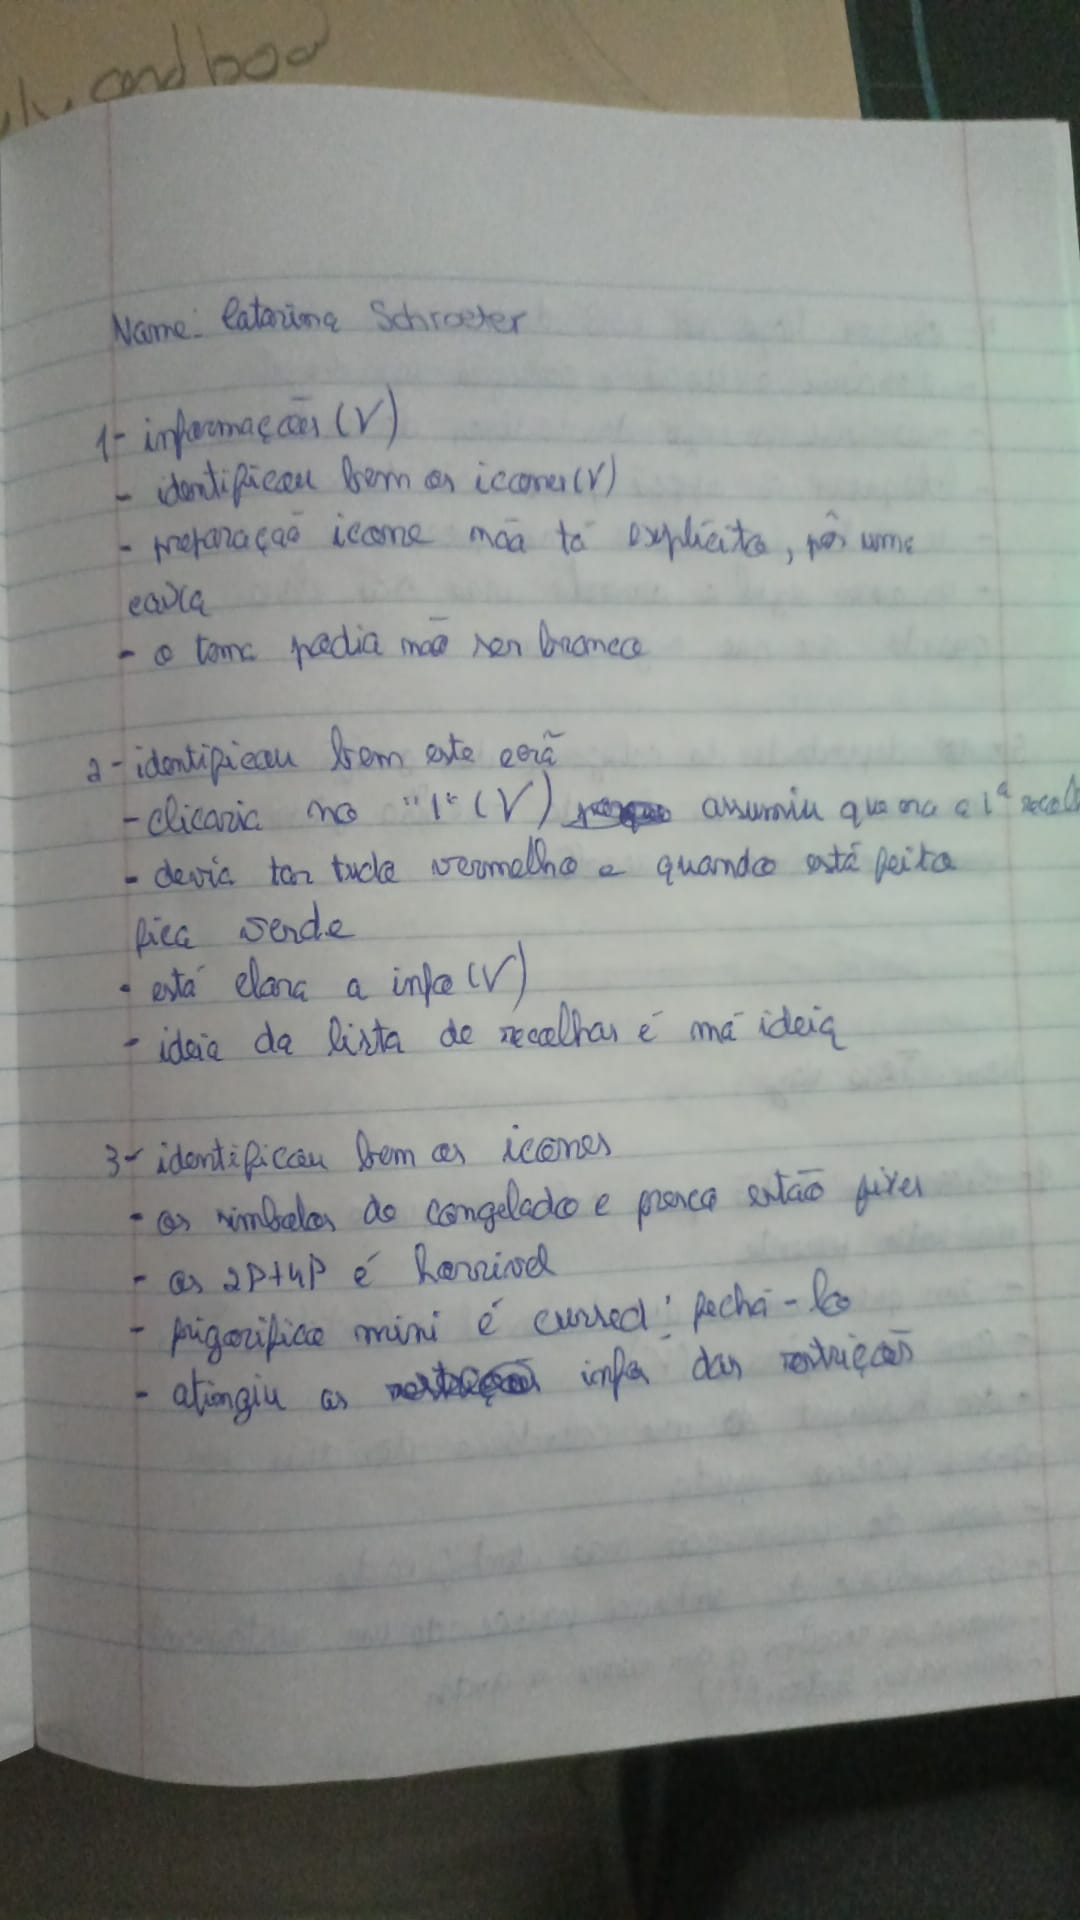 and boa
Name: Catarina Schroeter
1- informações (V)
- identificou bem os iccones (V)
- preparação icone não tá explícito, pôr uma
caixa
- o tema podia não ser branco
2- identificou bem este ecrã
- clicaria no "1" (V) assumiu que era a 1ª recolh
- devia tar tudo vermelho e quando está feito
fica verde
- está clara a info (V)
- ideia da lista de recolhas é má ideia
3- identificou bem os icones
- os simbolos do congelado e fresco estão fixes
- os 2P+4P é horrivel
- frigorifico mini é cursed: fechá-lo
- atingiu as infos das restrições